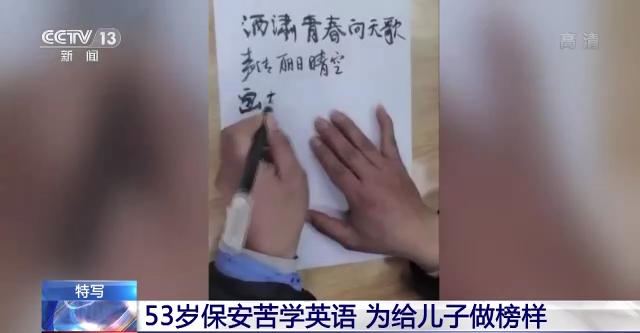 CCTV 13
新闻
高清
洒潇青春向天歌
丽日晴空
画
特写
53岁保安苦学英语 为给儿子做榜样